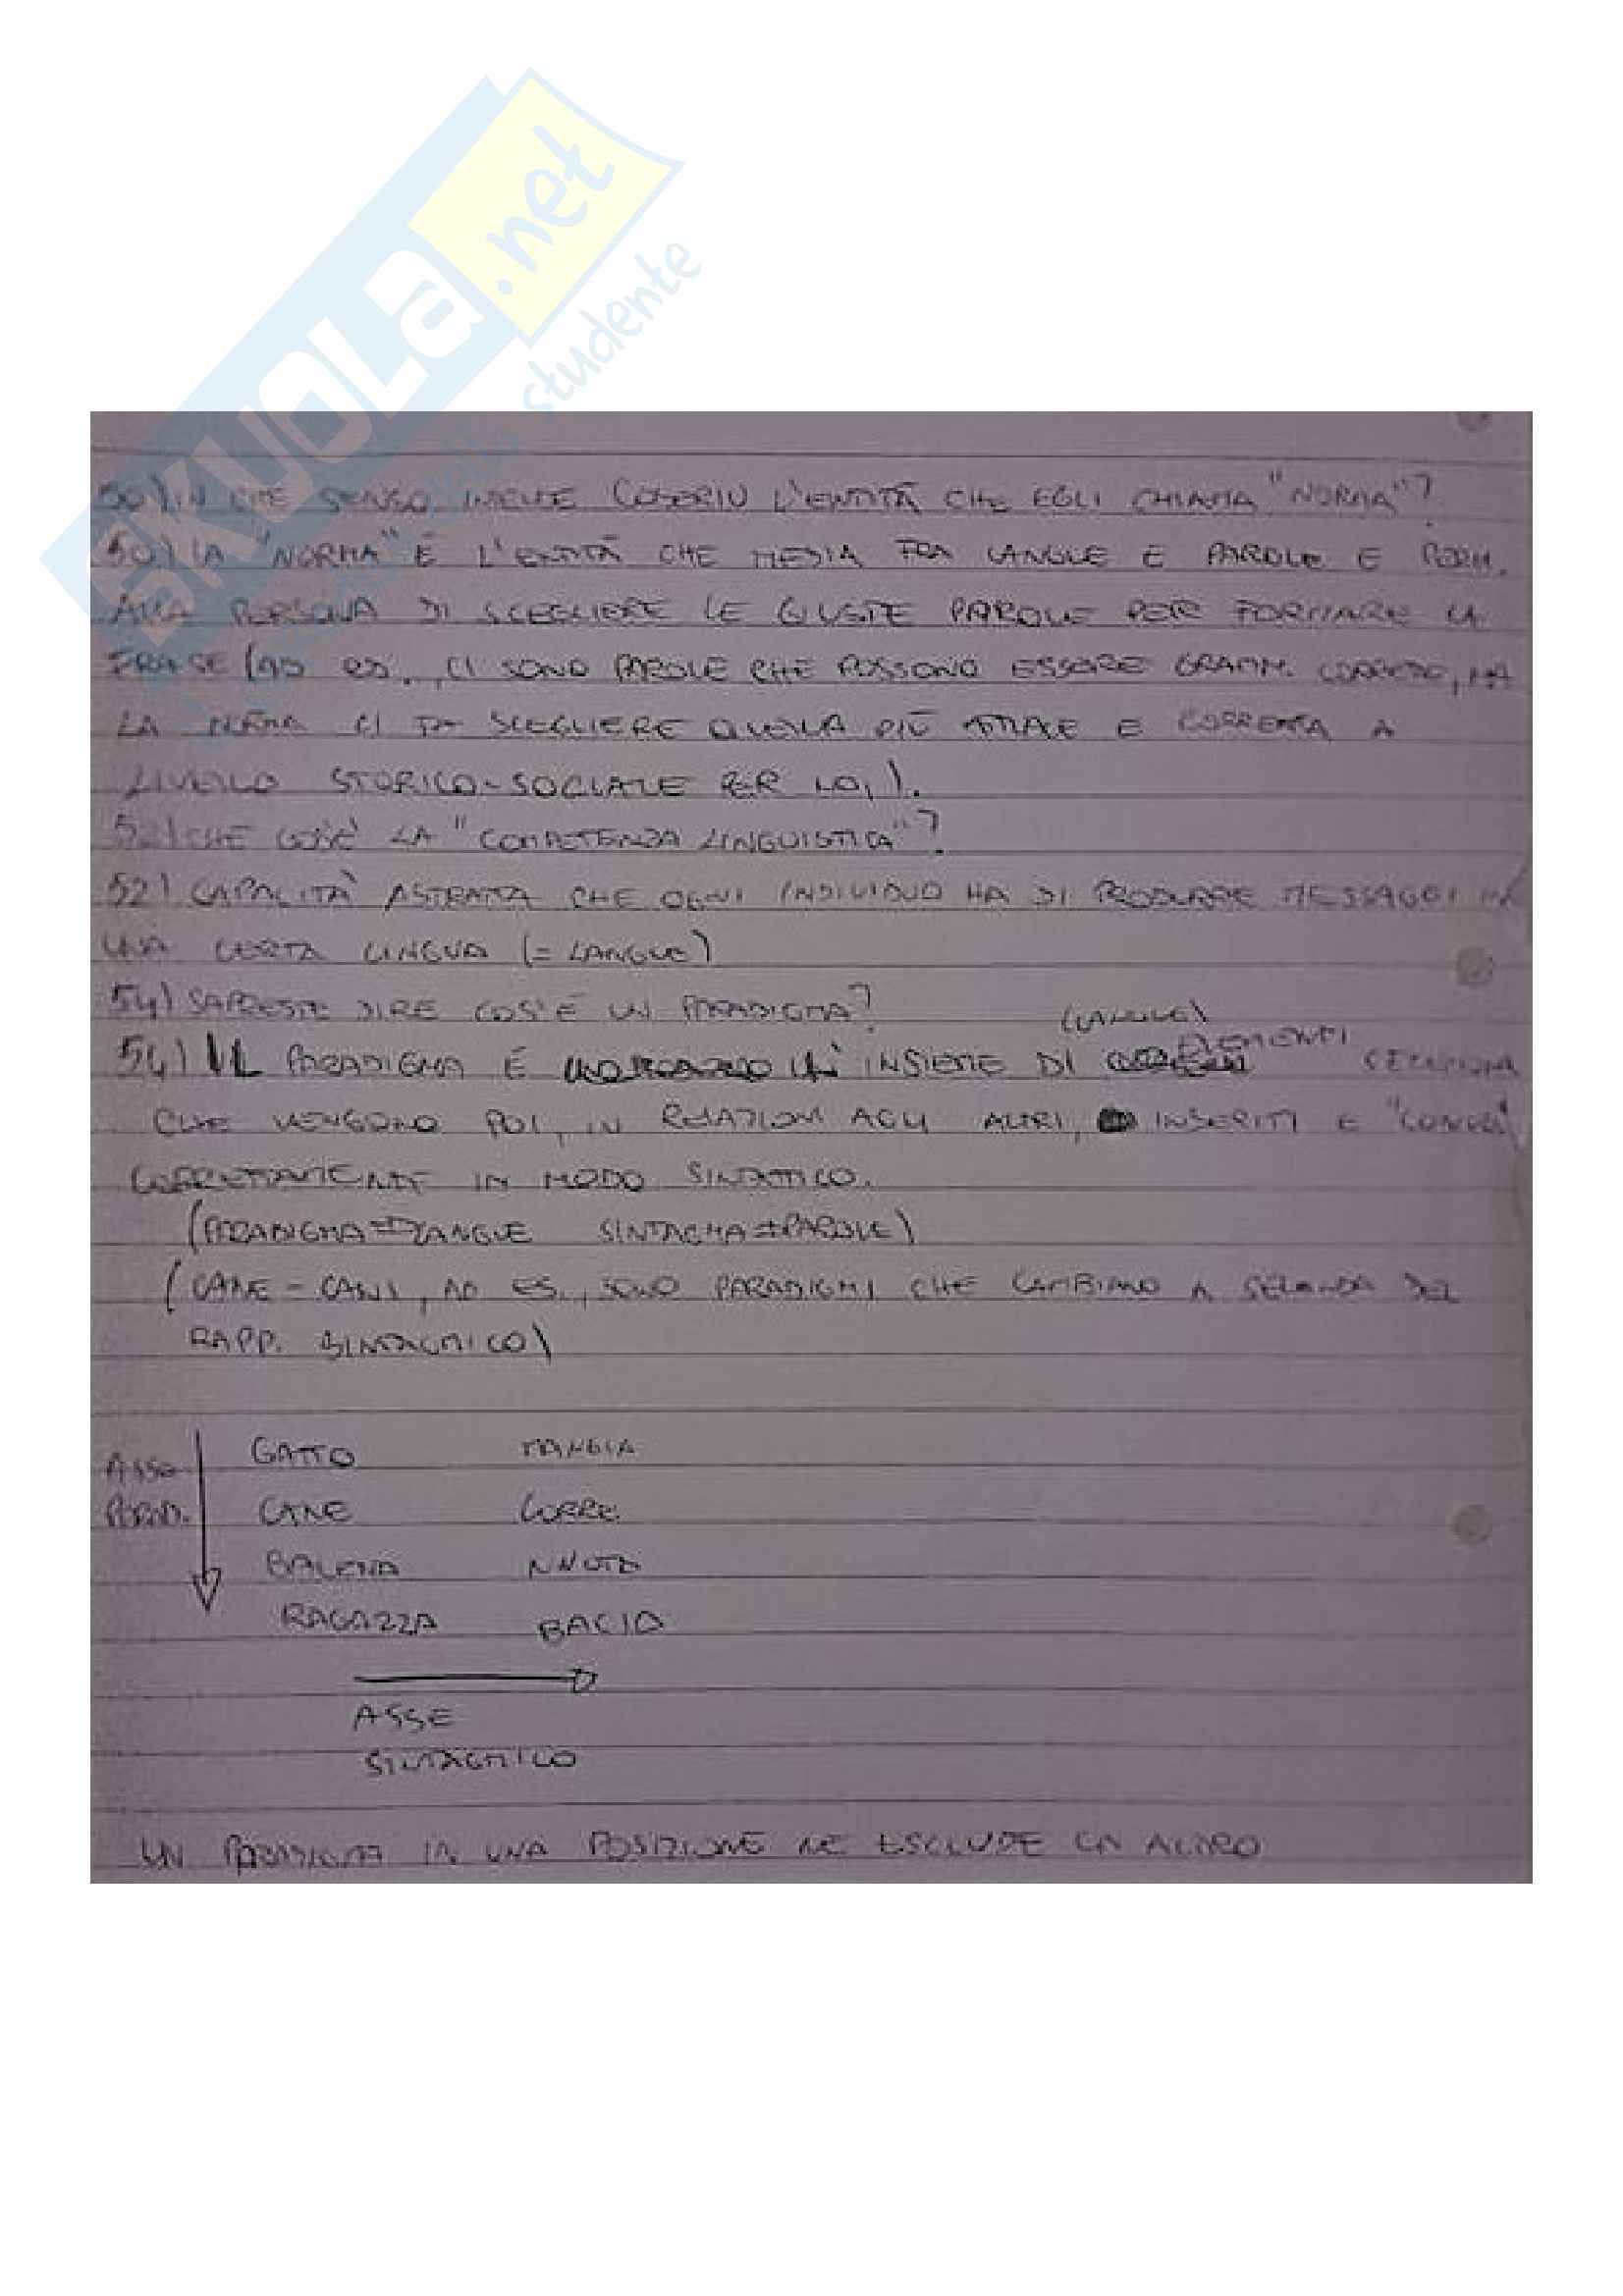 SKUOLA.net
studente
50) IN CHE SENSO INTENDE COSERIU L'ENTITÀ CHE EGLI CHIAMA "NORMA"?
50) LA "NORMA" È L'ENTITÀ CHE MEDIA FRA LANGUE E PAROLE E PERM.
ALLA PERSONA DI SCEGLIERE LE GIUSTE PAROLE PER FORMARE LA
FRASE (AD ES., CI SONO PAROLE CHE POSSONO ESSERE GRAMM. CORRETTE, MA
LA NORMA CI FA SCEGLIERE QUELLA PIÙ ATTUALE E CORRETTA A
LIVELLO STORICO-SOCIALE PER NOI).
52) CHE COS'È LA "COMPETENZA LINGUISTICA"?
52) CAPACITÀ ASTRATTA CHE OGNI INDIVIDUO HA DI PRODURRE MESSAGGI IN
UNA CERTA LINGUA (= LANGUE)
54) SAPRESTE DIRE COS'È UN PARADIGMA?
(LANGUE)
54) IL PARADIGMA È UN INSIEME DI ELEMENTI
CHE VENGONO POI, IN RELAZIONI AGLI ALTRI, INSERITI E
CORRETTAMENTE IN MODO SINTATTICO.
(PARADIGMA → LANGUE SINTAGMA → PAROLE)
(CANE - CANI, AD ES., SONO PARADIGMI CHE CAMBIANO A SECONDA DEL
RAPP. SINTAGMICO)
ASSE PARAD.
GATTO MANGIA
CANE CORRE
BALENA NUOTA
RAGAZZA BACIA
ASSE
SINTAGMICO
UN PARADIGMA IN UNA POSIZIONE NE ESCLUDE UN ALTRO